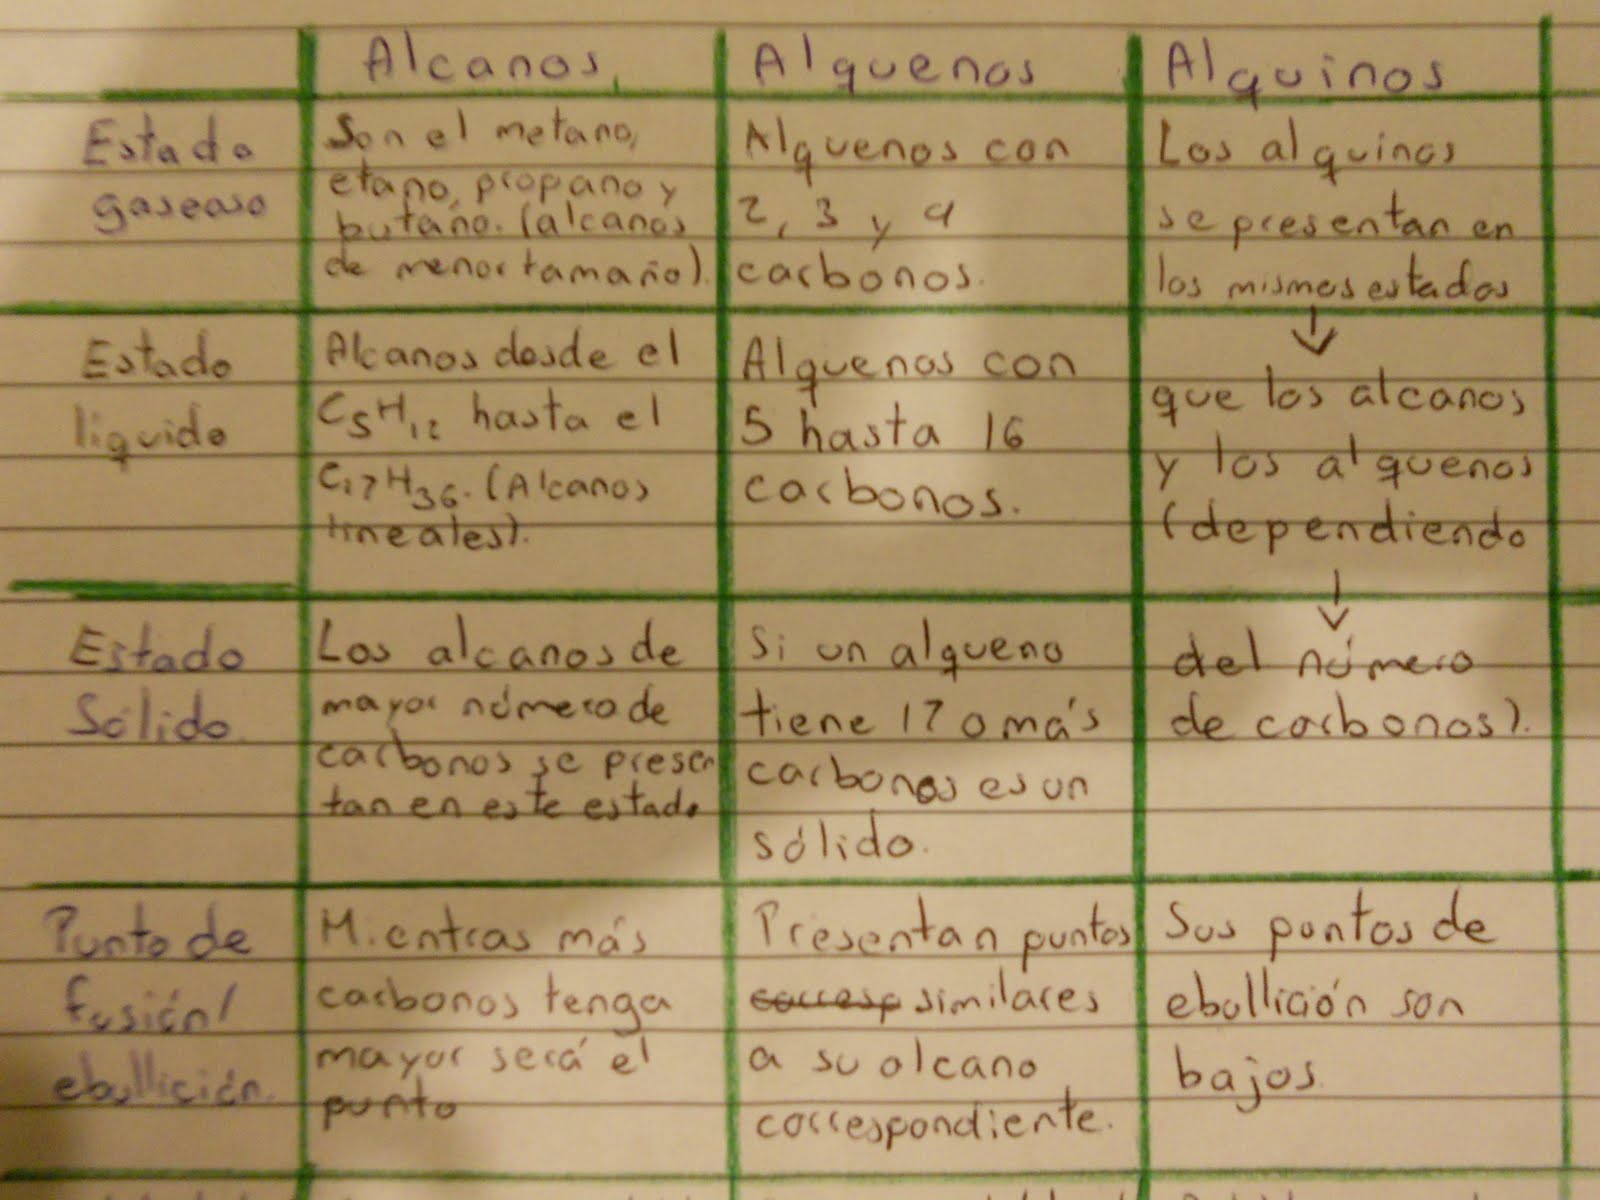 Alcanos Alquenos Alquinos
Estado
gaseaso
Son el metano,
etano, propano y
butano. (alcanos
de menor tamaño).
Alquenos con
2, 3 y 4
carbonos.
Los alquinos
se presentan en
los mismos estados
Estado
liquido
Alcanos desde el
C5H12 hasta el
C17H36. (Alcanos
lineales).
Alquenos con
5 hasta 16
carbonos.
que los alcanos
y los alquenos
(dependiendo
Estado
Sólido.
Los alcanos de
mayor número de
carbonos se presen
tan en este estado
Si un alqueno
tiene 17 o más
carbonos es un
sólido.
del número
de carbonos).
Punto de
fusión/
ebullición.
Mientras más
carbonos tenga
mayor será el
punto
Presentan puntos
corresp similares
a su alcano
correspondiente.
Sus puntos de
ebullición son
bajos.